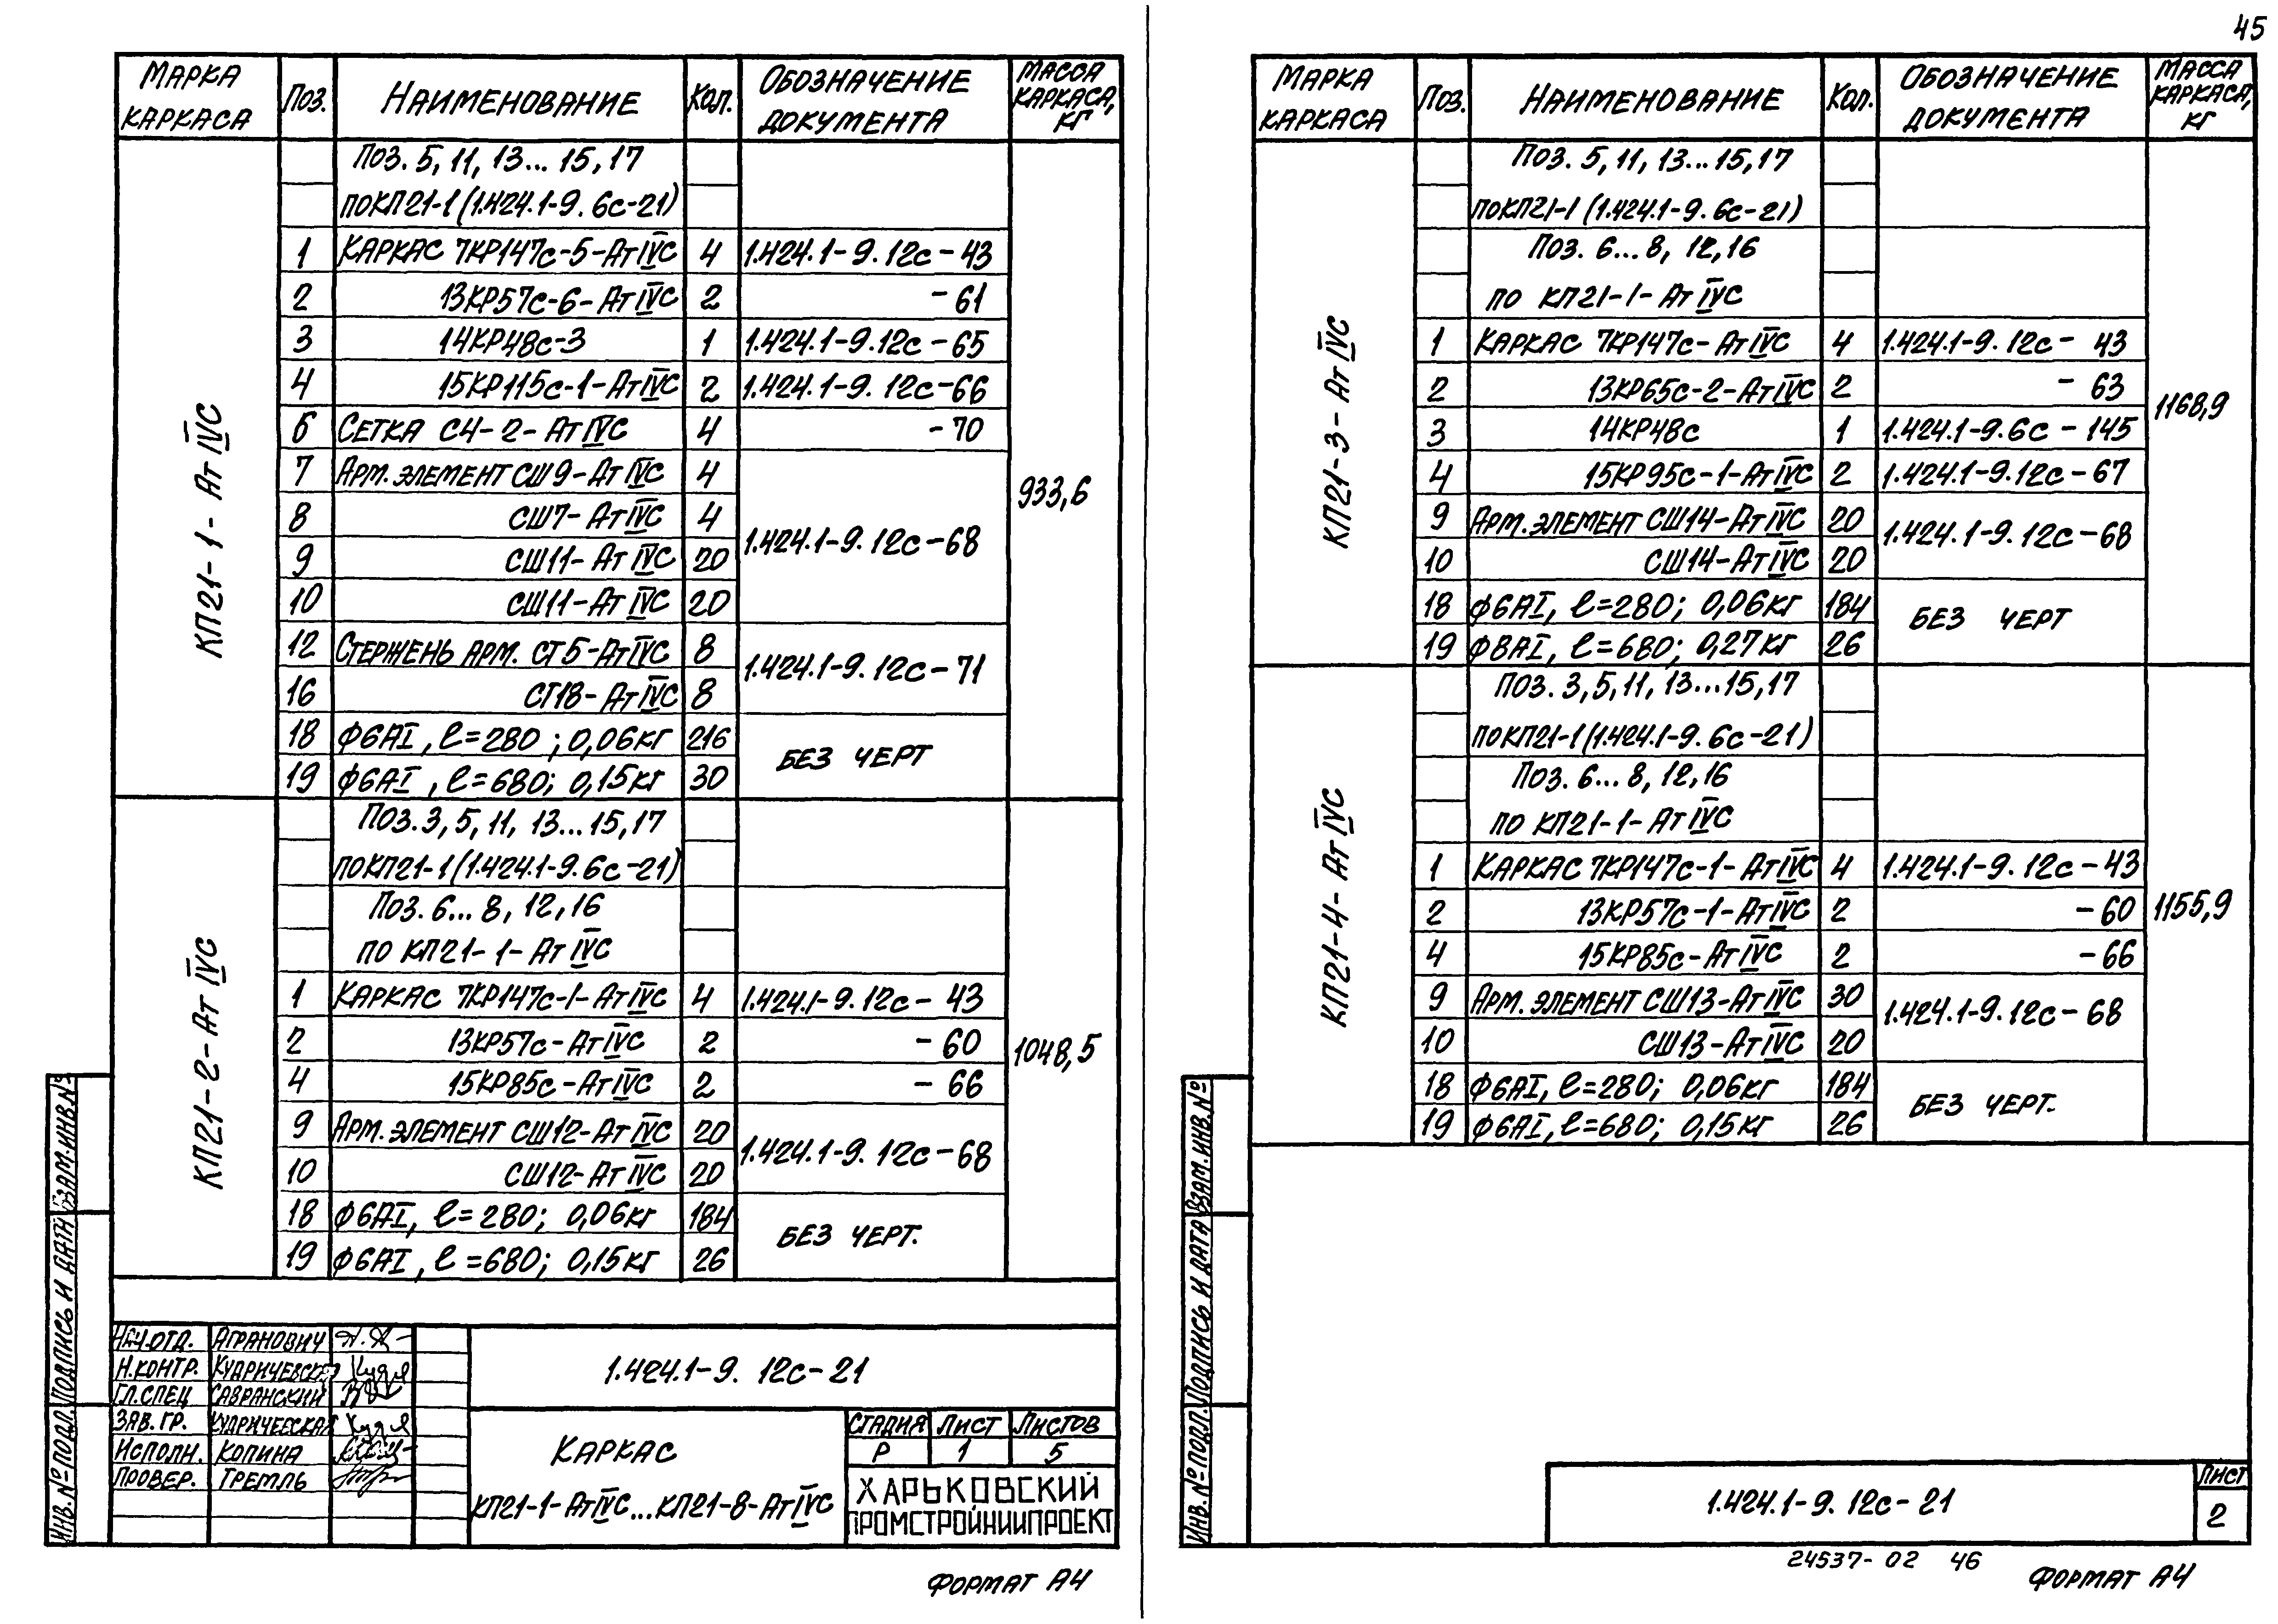 45
МАРКА КАРКАСА ПОЗ. НАИМЕНОВАНИЕ КОЛ. ОБОЗНАЧЕНИЕ ДОКУМЕНТА МАССА КАРКАСА, КГ
КП21-1-АтIVС 933,6
ПОЗ. 5, 11, 13...15, 17
ПО КП21-1 (1.424.1-9.6с-21)
1 КАРКАС 7КР147с-5-АтIVС 4 1.424.1-9.12с-43
2 13КР57с-6-АтIVС 2 -61
3 14КР48с-3 1 1.424.1-9.12с-65
4 15КР115с-1-АтIVС 2 1.424.1-9.12с-66
6 СЕТКА С4-2-АтIVС 4 -70
7 АРМ. ЭЛЕМЕНТ СШ9-АтIVС 4
8 СШ7-АтIVС 4 1.424.1-9.12с-68
9 СШ11-АтIVС 20
10 СШ11-АтIVС 20
12 СТЕРЖЕНЬ АРМ. СТ5-АтIVС 8 1.424.1-9.12с-71
16 СТ18-АтIVС 8
18 Ф6АI, ℓ=280; 0,06КГ 216 БЕЗ ЧЕРТ
19 Ф6АI, ℓ=680; 0,15КГ 30
КП21-2-АтIVС 1048,5
ПОЗ. 3, 5, 11, 13...15, 17
ПО КП21-1 (1.424.1-9.6с-21)
ПОЗ. 6...8, 12, 16
ПО КП21-1-АтIVС
1 КАРКАС 7КР147с-1-АтIVС 4 1.424.1-9.12с-43
2 13КР57с-АтIVС 2 -60
4 15КР85с-АтIVС 2 -66
9 АРМ. ЭЛЕМЕНТ СШ12-АтIVС 20 1.424.1-9.12с-68
10 СШ12-АтIVС 20
18 Ф6АI, ℓ=280; 0,06КГ 184 БЕЗ ЧЕРТ.
19 Ф6АI, ℓ=680; 0,15КГ 26
ИНВ.№ПОДЛ. ПОДПИСЬ И ДАТА ВЗАМ.ИНВ.№
НАЧ.ОТД. АГРАНОВИЧ
Н.КОНТР. КУДРИЧЕВСКАЯ
ГЛ.СПЕЦ САВРАНСКИЙ
ЗАВ. ГР. КУДРИЧЕВСКАЯ
ИСПОЛН. КОПИНА
ПРОВЕР. ТРЕМЛЬ
1.424.1-9. 12с-21
КАРКАС
КП21-1-АтIVС...КП21-8-АтIVС
СТАДИЯ ЛИСТ ЛИСТОВ
Р 1 5
ХАРЬКОВСКИЙ
ПРОМСТРОЙНИИПРОЕКТ
ФОРМАТ А4
МАРКА КАРКАСА ПОЗ. НАИМЕНОВАНИЕ КОЛ. ОБОЗНАЧЕНИЕ ДОКУМЕНТА МАССА КАРКАСА, КГ
КП21-3-АтIVС 1168,9
ПОЗ. 5, 11, 13...15, 17
ПО КП21-1 (1.424.1-9.6с-21)
ПОЗ. 6...8, 12, 16
ПО КП21-1-АтIVС
1 КАРКАС 7КР147с-АтIVС 4 1.424.1-9.12с-43
2 13КР65с-2-АтIVС 2 -63
3 14КР48с 1 1.424.1-9.6с-145
4 15КР95с-1-АтIVС 2 1.424.1-9.12с-67
9 АРМ. ЭЛЕМЕНТ СШ14-АтIVС 20 1.424.1-9.12с-68
10 СШ14-АтIVС 20
18 Ф6АI, ℓ=280; 0,06КГ 184 БЕЗ ЧЕРТ
19 Ф8АI, ℓ=680; 0,27КГ 26
КП21-4-АтIVС 1155,9
ПОЗ. 3, 5, 11, 13...15, 17
ПО КП21-1 (1.424.1-9.6с-21)
ПОЗ. 6...8, 12, 16
ПО КП21-1-АтIVС
1 КАРКАС 7КР147с-1-АтIVС 4 1.424.1-9.12с-43
2 13КР57с-1-АтIVС 2 -60
4 15КР85с-АтIVС 2 -66
9 АРМ. ЭЛЕМЕНТ СШ13-АтIVС 30 1.424.1-9.12с-68
10 СШ13-АтIVС 20
18 Ф6АI, ℓ=280; 0,06КГ 184 БЕЗ ЧЕРТ.
19 Ф6АI, ℓ=680; 0,15КГ 26
ИНВ.№ПОДЛ. ПОДПИСЬ И ДАТА ВЗАМ.ИНВ.№
1.424.1-9. 12с-21
ЛИСТ
2
24537-02 46
ФОРМАТ А4